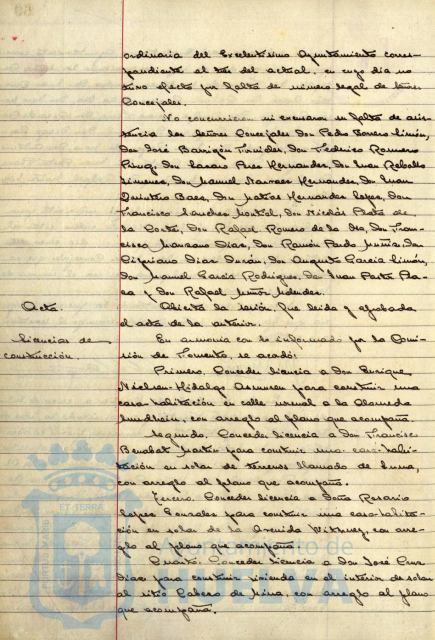 ordinaria del Excelentísimo Ayuntamiento corres-
pondiente al tres del actual, en cuyo día no
tuvo efecto por falta de número legal de Señores
Concejales.
No concurrieron ni excusaron su falta de asis-
tencia los Señores Concejales Don Pedro Borrero Limón,
Don José Barrigón Don Federico Romero
Don Lazaro Perez Hernandez, Don Juan Rebollo
Jimenez, Don Manuel Narvaez Hernandez, Don Juan
Quintero Baez, Don Matías Hernandez Lopez, Don
Francisco Sanchez Montiel, Don Nicolás de
la Corte, Don Rafael Romero de la Don Fran-
cisco Manzano Diaz, Don Ramón Pardo Don
Cipriano Diaz Durán, Don Augusto García Limón,
Don Manuel García Rodriguez, Don Juan
y Don Rafael Muñoz Mendez.
Acta. Abierta la sesión, fué leida y aprobada
el acta de la anterior.
Licencias de construcción. En armonía con lo informado por la Comi-
sión de Fomento, se acordó:
Primero. Conceder licencia a Don Enrique
Nielsen-Hidalgo para construir una
casa-habitación en calle normal a la Alameda
Sundheim, con arreglo al plano que acompaña.
Segundo. Conceder licencia a Don Francisco
Benabat para construir una casa-habi-
tación en solar de terrenos llamado de
con arreglo al plano que acompaña.
Tercero. Conceder licencia a Doña Rosario
Lopez Gonzalez para construir una casa-habita-
ción en solar de la Avenida con arre-
glo al plano que acompaña.
Cuarto. Conceder licencia a Don José Cruz
Diaz para construir vivienda en el interior de solar
al sitio Cabezo de Mina, con arreglo al plano
que acompaña.
Ayuntamiento de
HUELVA